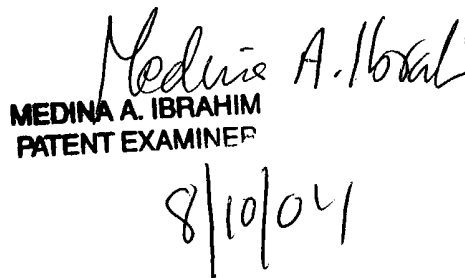 Medina A. Ibrah
MEDINA A. IBRAHIM
PATENT EXAMINER
8/10/04